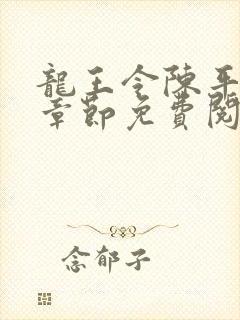 龍王令陳平
章節免費閱
念郁子